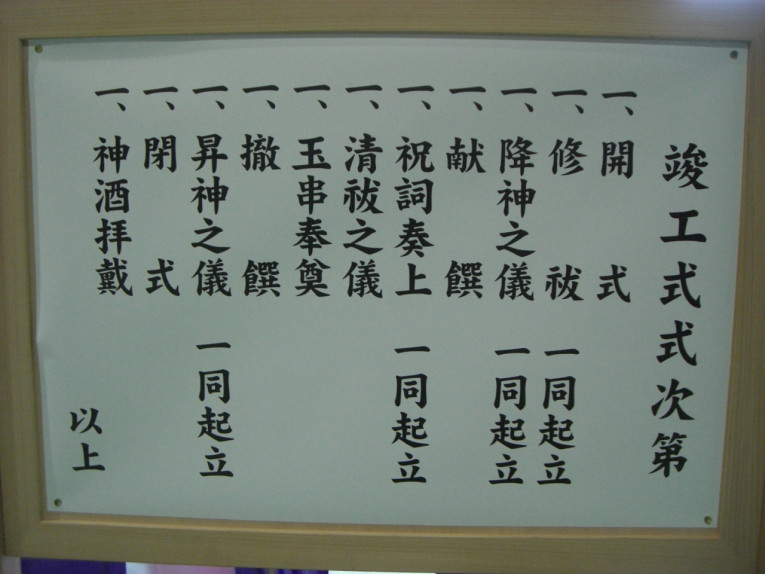 竣工式式次第
一、開式
一、修祓 一同起立
一、降神之儀 一同起立
一、献饌
一、祝詞奏上 一同起立
一、清祓之儀
一、玉串奉奠
一、撤饌
一、昇神之儀 一同起立
一、閉式
一、神酒拝戴
以上